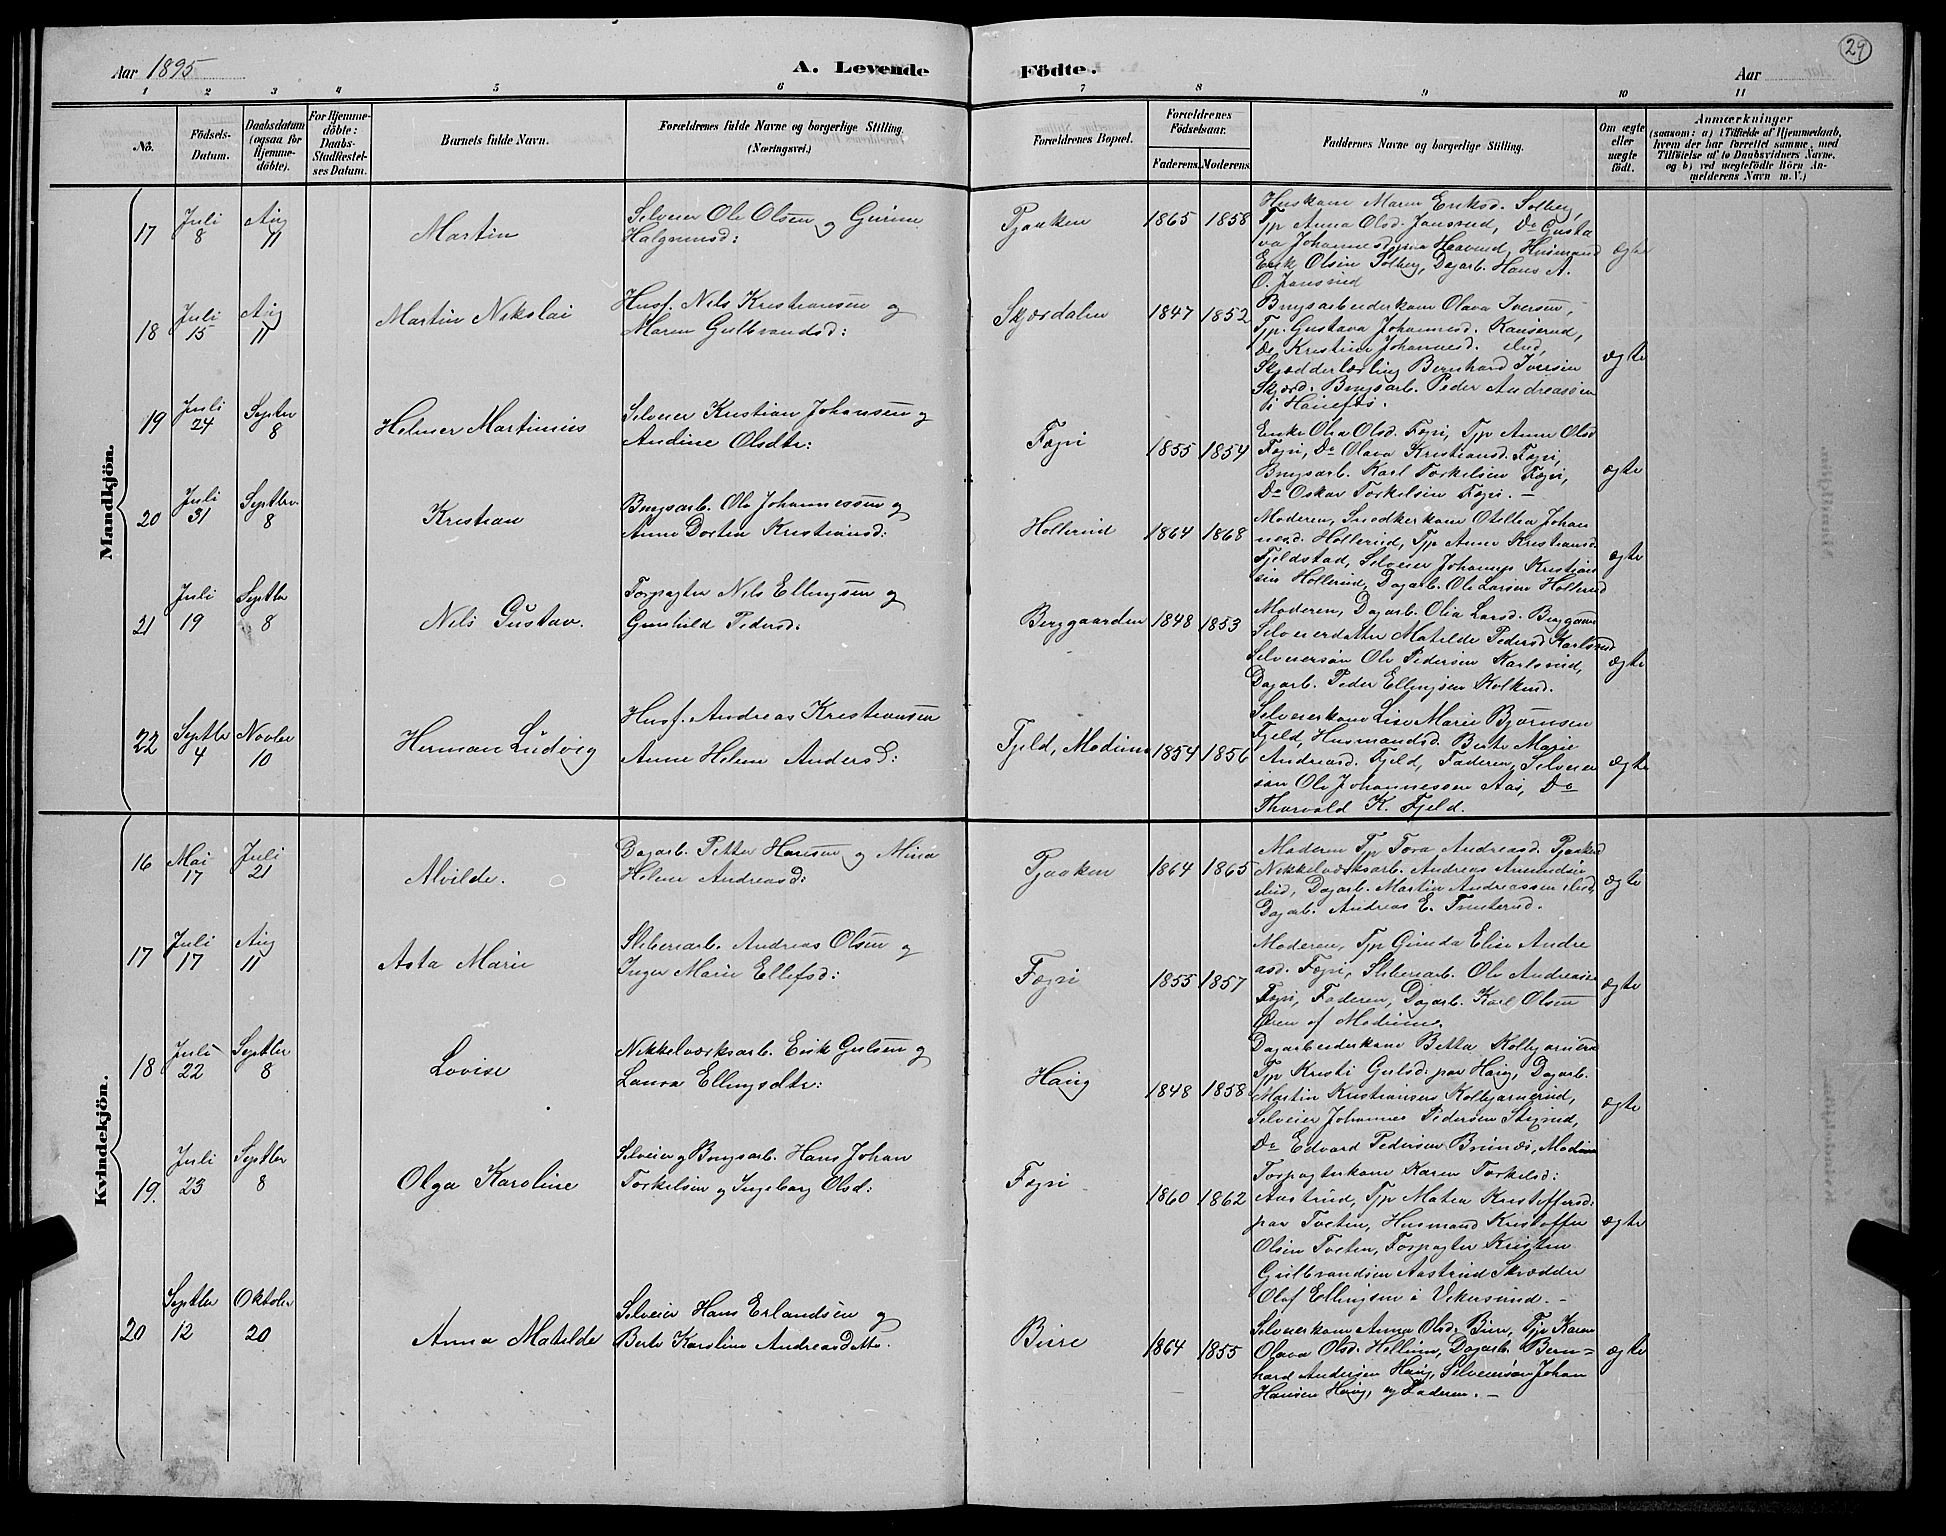 29
Aar 1895
A. Levende Födte.
Aar
1 2 3 4 5 6 7 8 9 10 11
No.
Födsels-Datum.
Daabsdatum (ogsaa for Hjemme-döbte).
For Hjemme-döbte: Daabs-Stadfæstel-ses Datum.
Barnets fulde Navn.
Forældrenes fulde Navne og borgerlige Stilling. (Næringsvei.)
Forældrenes Bopæl.
Forældrenes Födselsaar.
Faderens. Moderens.
Faddernes Navne og borgerlige Stilling.
Om ægte eller uægte födt.
Anmærkninger
(saasom: a) i Tilfælde af Hjemmedaab,
hvem der har forrettet samme, med
Tilföielse af to Daabsvidners Navne,
og b) ved uægtefödte Börn An-
melderens Navn m. V.)
Mandkjön.
17 Juli 8 Aug 11 Martin
Selveier Ole Olsen og Gunne
Halgrimsd:
Tjaaken 1865 1858
Huskone Maren Eriksd. Solberg,
Tjp Anna Olsd. Jansrud, Do Gusta
va Johannesd, Husmand
Erik Olsen Solberg, Dagarb. Hans A.
O. Jansrud
ægte
18 Juli 15 Aug 11 Martin Nikolai
Husf. Nils Kristiansen og
Maren Gulbrandsd:
Skjærdalen 1847 1852
Brugsarbeiderkone Olava Iversen,
Tjp. Gustava Johannesd.
Do Kristine Johannesd.
Skrædderlærling Bernhard Iversen
Skjærd. Brugsarb. Peder Andreasøn
i Hønefos.
ægte
19 Juli 24 Septbr 8 Helmer Martinius
Selveier Kristian Johansen og
Andine Olsdtr:
Fegri 1855 1854
Enke Olea Olsd. Fegri, Tjp Anne Olsd
Fegri, Do Olava Kristiansd. Fegri,
Brugsarb. Karl Torkelsen Fegri,
Do Oskar Torkelsen Fegri. –
ægte
20 Juli 31 Septbr. 8 Kristian
Brugsarb. Ole Johannessen og
Anne Dortea Kristiansd:
Hollerud 1864 1868
Moderen, Snedkerkone Otellea Johan
nesd. Hollerud, Tjp Anne Kristiansd.
Fjeldstad, Selveier Johannes Kristian
sen Hollerud, Dagarb. Ole Larsen Hollerud
ægte
21 Juli 19 Septbr 8 Nels Gustav.
Forpagter Nels Ellingsen og
Gunhild Pedersd:
Berggaarden 1848 1853
Moderen, Dagarb. Olia Larsd. Berggaard
Selveierdatter Matilde Pedersd Karlsrud
Selveiersøn Ole Pedersen Karlsrud,
Dagarb. Peder Ellingsen Kolkind.
ægte
22 Septbr 4 Novbr 10 Herman Ludvig
Husf. Andreas Kristiansen
Anne Helene Andersd:
Fjeld, Modum 1854 1856
Selveierkone Lise Marie Bjørnsen
Fjeld, Husmandsd. Berte Marie
Andreasd. Fjeld, Faderen, Selveier
søn Ole Johannessen Aas, Do
Thorvald K. Fjeld.
ægte
Kvindekjön.
16 Mai 17 Juli 21 Alvilde.
Dagarb. Petter Hansen og Mina
Helene Andreasd:
Tjaaken 1864 1865
Moderen Tjp Tora Andreasd. Tjaaken
Nikkelværksarb. Andreas Amundsen
ibid, Dagarb. Martin Andreassen ibid,
Dagarb. Andreas E. Tronterud.
ægte
17 Juli 17 Aug 11 Asta Marie
Sliberiarb. Andreas Olsen og
Inger Marie Ellefsd:
Fegri 1855 1857
Moderen, Tjp Gunda Elise Andre
asd. Fegri, Sliberiarb. Ole Andreasen
Fegri, Faderen, Dagarb. Karl Olsen
Øren af Modum.
ægte
18 Juli 22 Septbr 8 Lovise
Nikkelværksarb. Erik Gulsen og
Laura Ellingsdtr:
Haug 1848 1858
Dagarbeiderkone Betta Kolbjørnerud
Tjp Kristi Gulsd. paa Haug, Dagarb.
Martin Kristiansen Kolbjørnerud,
Selveier Johannes Pedersen
Do Edvard Pedersen Modum
ægte
19. Juli 23 Septbr 8 Olga Karoline
Selveier og Brugsarb. Hans Johan
Torkelsen og Ingeborg Olsd:
Fegri 1860 1862
Forpagterkone Karen Torkelsd:
Aastrud, Tjp Matea Kristoffersd:
paa Tveten, Husmand Kristoffer
Olsen Tveten, Forpagter Kristen
Gulbrandsen Aastrud Skrædder
Olaf Ellingsen i Vikersund. –
ægte
20 Septbr 12 Oktober 20 Anna Matilde
Selveier Hans Erlandsen og
Berte Karoline Andreasdatter.
Bure 1864 1855
Selveierkone Anna Olsd. Bure, Tjp Karen
Olava Olsd. Hellum, Dagarb. Bern=
hard Andersen Haug, Selveiersøn Johan
Hansen Haug, og Faderen. –
ægte